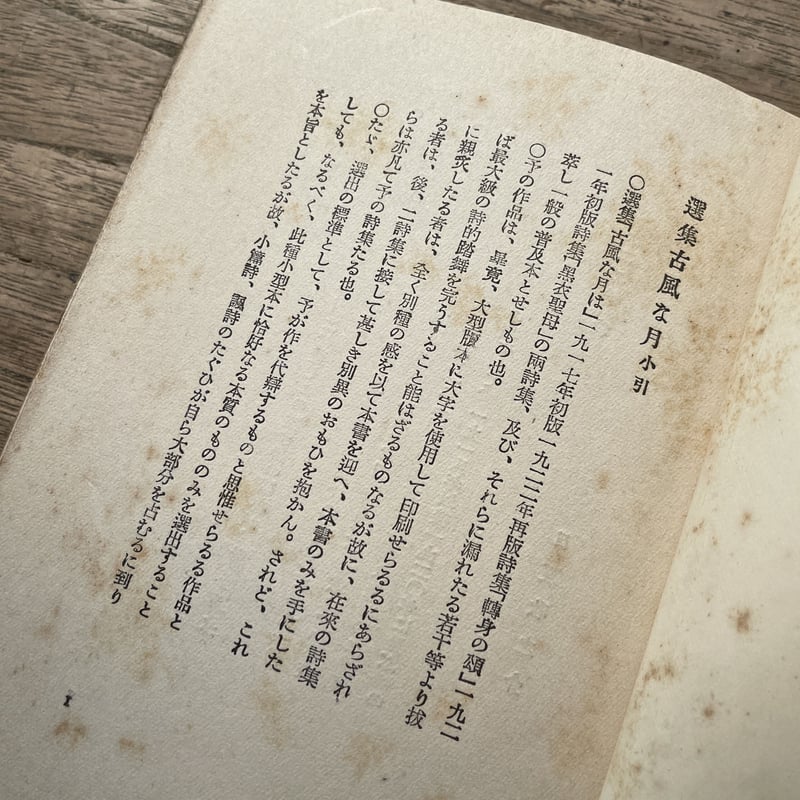 選集古風な月小引
○選集「古風な月は」一九一七年初版一九二二年再版詩集「轉身の頌」一九二
一年初版詩集「黑衣聖母」の兩詩集、及び、それらに漏れたる若干等より拔
萃し一般の普及本とせしもの也。
○予の作品は、畢竟、大型版本に大字を使用して印刷せらるるにあらざれ
ば最大級の詩的踏舞を完うすること能はざるものなるが故に、在來の詩集
に親炙したる者は、全く別種の感を以て本書を迎へ、本書のみを手にした
る者は、後、二詩集に接して甚しき別異のおもひを抱かん。されど、これ
らは亦凡て予の詩集たる也。
○たゞ、選出の標準として、予が作を代辯するものと思惟せらるる作品と
しても、なるべく、此種小型本に恰好なる本質のもののみを選出すること
を本旨としたるが故、小篇詩、諷詩のたぐひが自ら大部分を占むるに到り
I